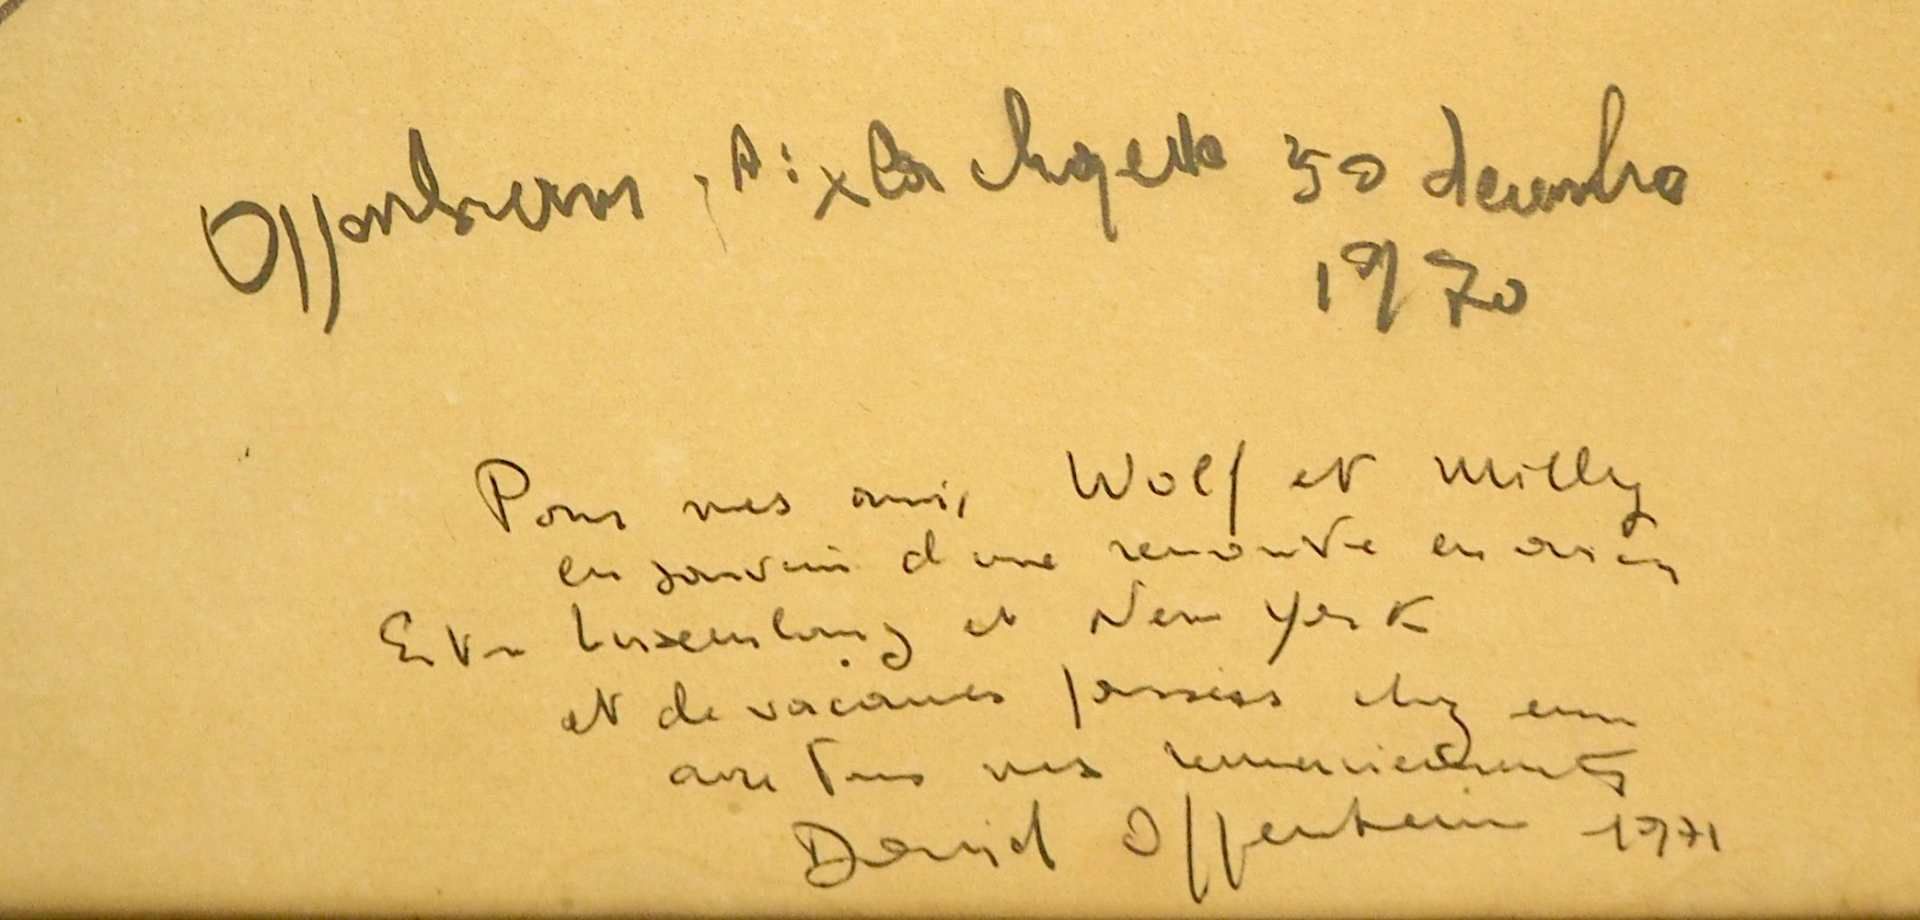 Oppenheim, Aix la Chapelle 30 decembre
1970
Pour mes amis Wolf et Milly
en souvenir d'une rencontre en avion
Entre Luxembourg et New York
et de vacances passées chez eux
avec tous mes remerciements
David Oppenheim 1971